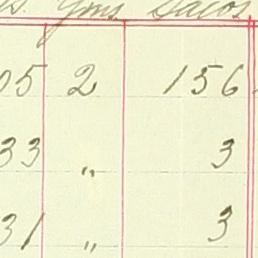 Gms. Sacos
05 2 156
33 " 3
31 " 3